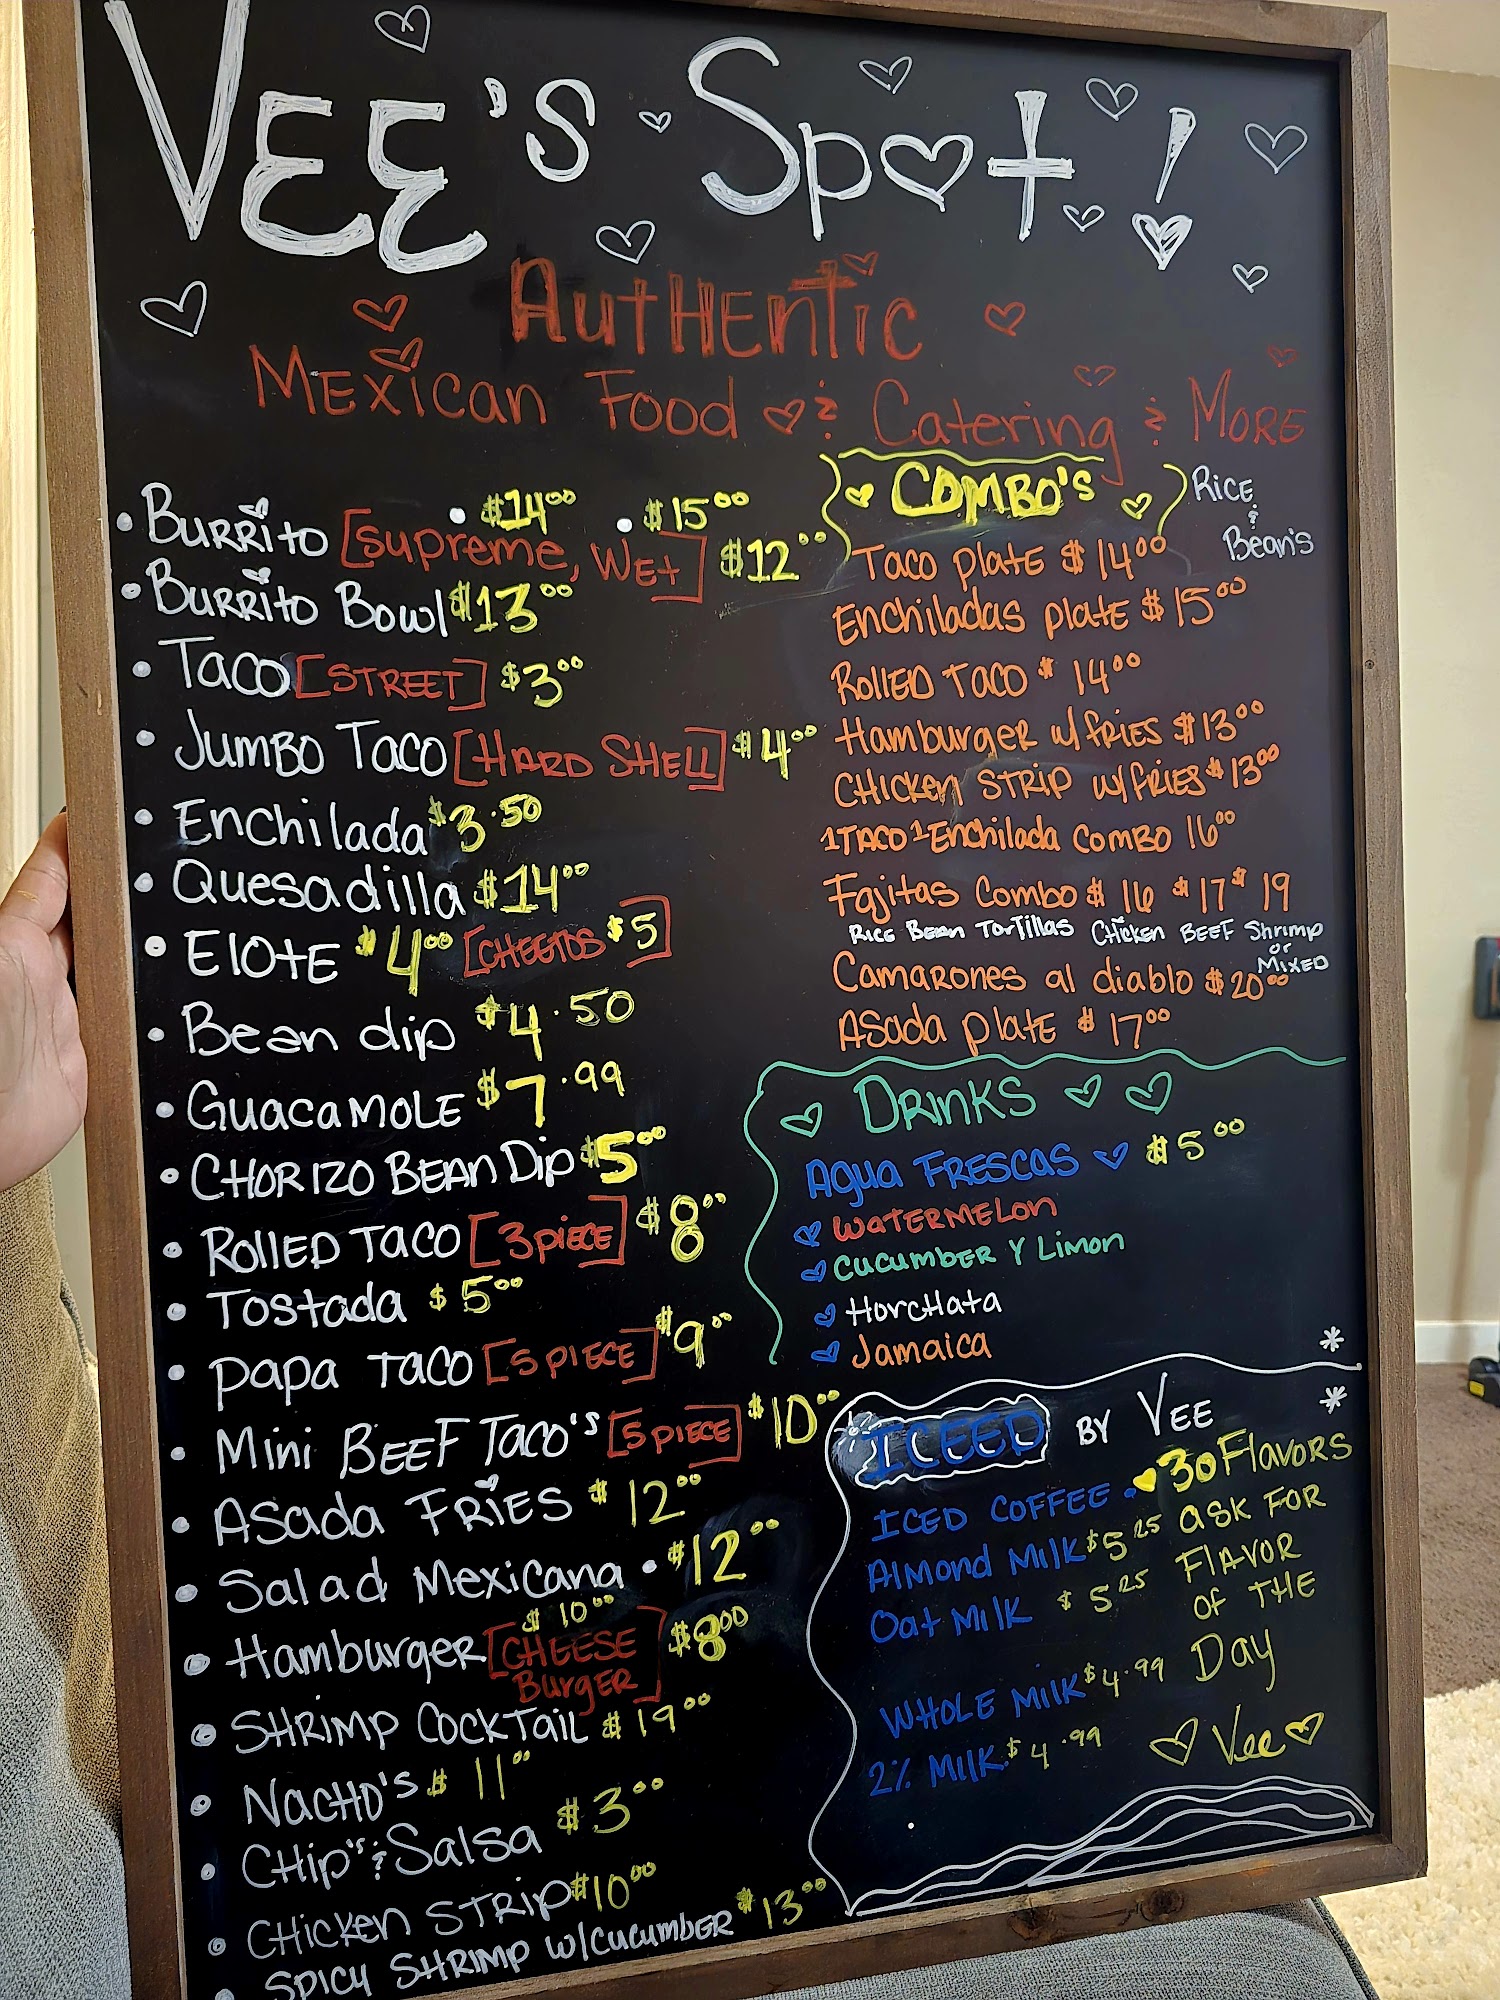 VEE's Spot!
Authentic
Mexican Food & Catering & More
• $14.00 • $15.00
• Burrito [Supreme, Wet] $12.00
• Burrito Bowl $13.00
• Taco [Street] $3.00
• Jumbo Taco [Hard Shell] $4.00
• Enchilada $3.50
• Quesadilla $14.00
• Elote $4.00 [Cheetos $5]
• Bean dip $4.50
• Guacamole $7.99
• Chorizo Bean Dip $5.00
• Rolled Taco [3 piece] $8.00
• Tostada $5.00
• Papa Taco [5 piece] $9.00
• Mini Beef Taco's [5 piece] $10.00
• Asada Fries $12.00
• Salad Mexicana • $12.00
$10.00
• Hamburger [Cheese Burger] $8.00
• Shrimp Cocktail $19.00
• Nacho's $11.00
• Chip's & Salsa $3.00
• Chicken Strip $10.00
• Spicy Shrimp w/cucumber $13.00
Combo's
Rice
&
Bean's
Taco plate $14.00
Enchiladas plate $15.00
Rolled Taco $14.00
Hamburger w/fries $13.00
Chicken Strip w/fries $13.00
1 Taco 1 Enchilada Combo 16.00
Fajitas Combo $16 $17 $19
Rice Bean Tortillas Chicken Beef Shrimp
or
Mixed
Camarones al diablo $20.00
Asada plate $17.00
Drinks
Agua Frescas $5.00
Watermelon
Cucumber y Limon
Horchata
Jamaica
*
*
ICEED by Vee
Iced Coffee • 30 Flavors
Almond Milk $5.25 Ask for
Oat Milk $5.25 Flavor
of the
Day
Whole Milk $4.99
2% Milk $4.99
Vee